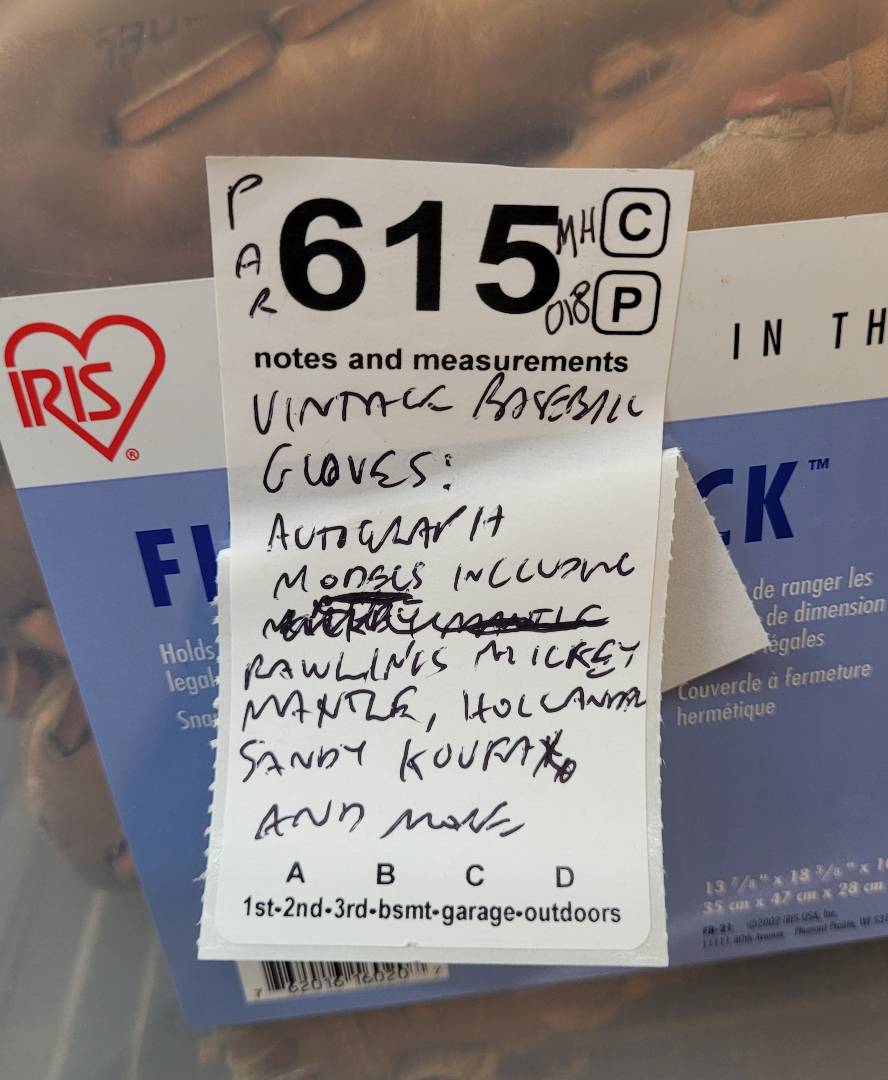 P A R
615
MH C
018 P
notes and measurements
VINTAGE BASEBALL
GLOVES:
AUTOGRAPH
MODELS INCLUDING
RAWLINGS MICKEY
MANTLE, HOLLANDER
SANDY KOUFAX
AND MORE
A B C D
1st-2nd-3rd-bsmt-garage-outdoors
IRIS®
IN TH
CK™
Holds
legal
Sna
de ranger les
de dimension
légales
Couvercle à fermeture
hermétique
13 7/8" x 18 3/8" x 1
35 cm x 47 cm x 28 cm
FB-21 ©2002 IRIS USA, Inc.
11111 80th Avenue Pleasant Prairie, WI 53
7 62016 16020 7